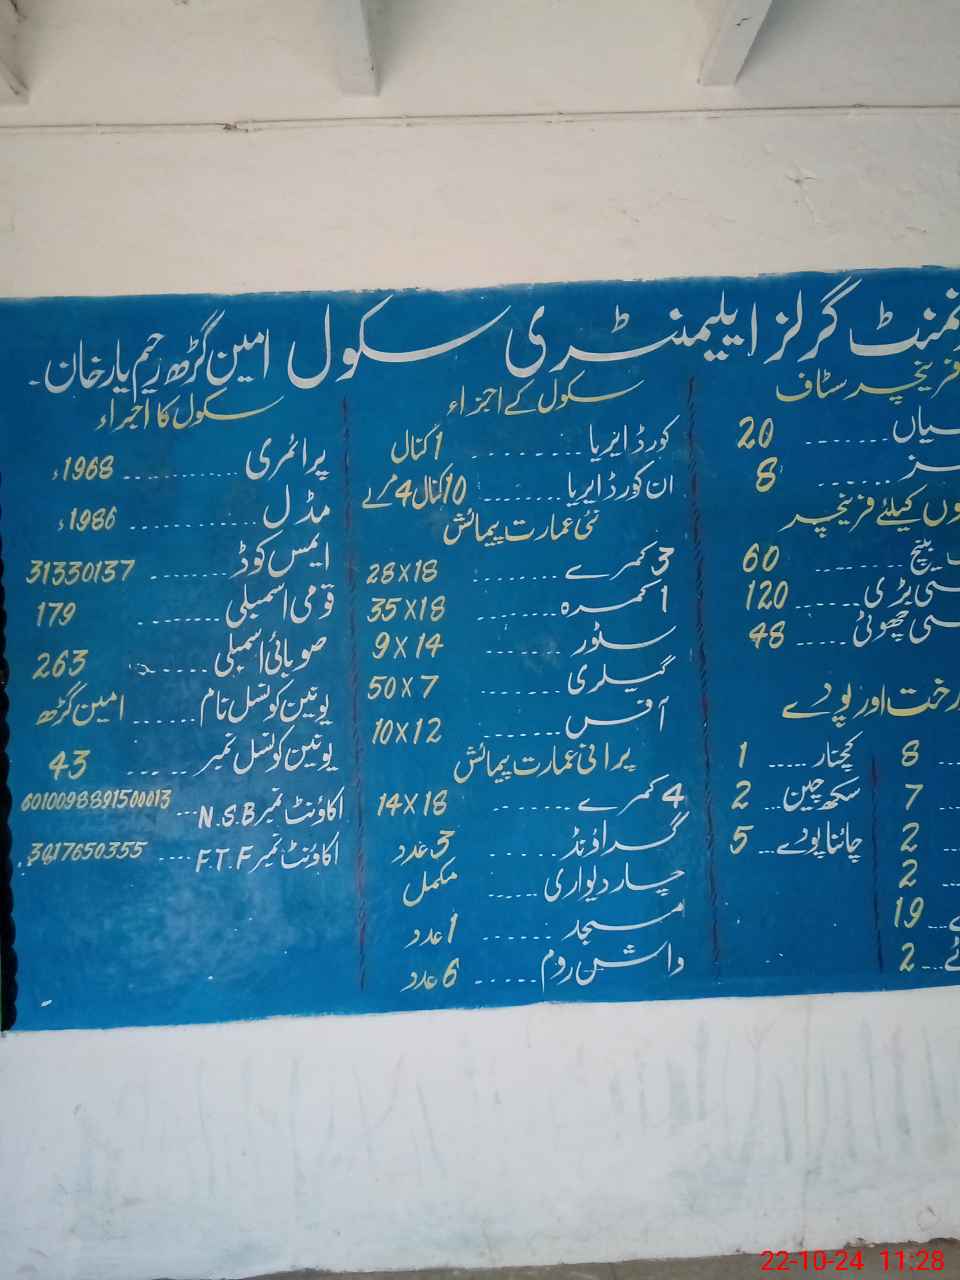 گرلز ایلیمنٹری سکول امین گڑھ رحیم یار خان۔
فرنیچر سٹاف
20
8
کیلئے فرنیچر
بینچ ........ 60
بڑی ...... 120
چھوٹی ..... 48
اور پودے
8
7
2
2
19
2
کچنار ..... 1
سکھ چین ... 2
چائنا پودے ... 5
سکول کے اجزاء
کورڈ ایریا ......... 1 کنال
ان کورڈ ایریا ........ 10 کنال 4 مرلے
نئی عمارت پیمائش
3 کمرے ........ 28x18
1 کمرہ ........ 35x18
سٹور ...... 9x14
گیلری ....... 50x7
آفس ....... 10x12
پرانی عمارت پیمائش
4 کمرے ....... 14x18
گراؤنڈ ....... 3 عدد
چار دیواری ..... مکمل
مسجد ....... 1 عدد
واش روم ...... 6 عدد
سکول کا اجراء
پرائمری .......... 1968ء
مڈل .......... 1986ء
ایمس کوڈ ........ 31330137
قومی اسمبلی ........ 179
صوبائی اسمبلی ...... 263
یونین کونسل نام ...... امین گڑھ
یونین کونسل نمبر ...... 43
اکاؤنٹ نمبر N.S.B ... 6010098891500013
اکاؤنٹ نمبر F.T.F .... 3017650355
22-10-24 11:28